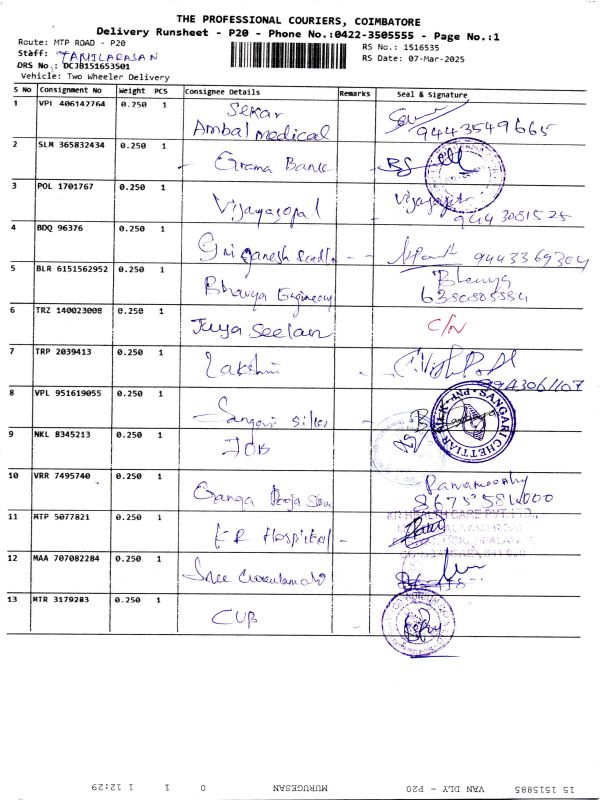 THE PROFESSIONAL COURIERS, COIMBATORE
Delivery Runsheet - P20 - Phone No.:0422-3505555 - Page No.:1
Route: MTP ROAD - P20
RS No.: 1516535
Staff: TAMILARASAN
RS Date: 07-Mar-2025
DRS No.: DCJB151653501
Vehicle: Two Wheeler Delivery
S No Consignment No Weight PCS Consignee Details Remarks Seal & Signature
1 VPL 406142764 0.250 1 Sekar
Ambal medical 9443549665
2 SLM 365832434 0.250 1 Grama Bank
3 POL 1701767 0.250 1 Vijayagopal
9443081525
4 BDQ 96376 0.250 1 Sri Ganesh 9443369304
5 BLR 6151562952 0.250 1 Bhavya Engineering Bhavya
6380805554
6 TRZ 140023008 0.250 1 Jaya Seelan C/N
7 TRP 2039413 0.250 1 Lakshmi
9943061107
8 VPL 951619055 0.250 1 Sangari silks
SANGARI CHETTIAR
9 NKL 8345213 0.250 1 IOB
10 VRR 7495740 0.250 1 Ganga Pooja Store
11 MTP 5077821 0.250 1 KR Hospital
12 MAA 707082284 0.250 1 Sree
13 MTR 3179283 0.250 1 CUB
15 1515885 VAN DLY - P20 MURUGESAN 0 1 1 12:29